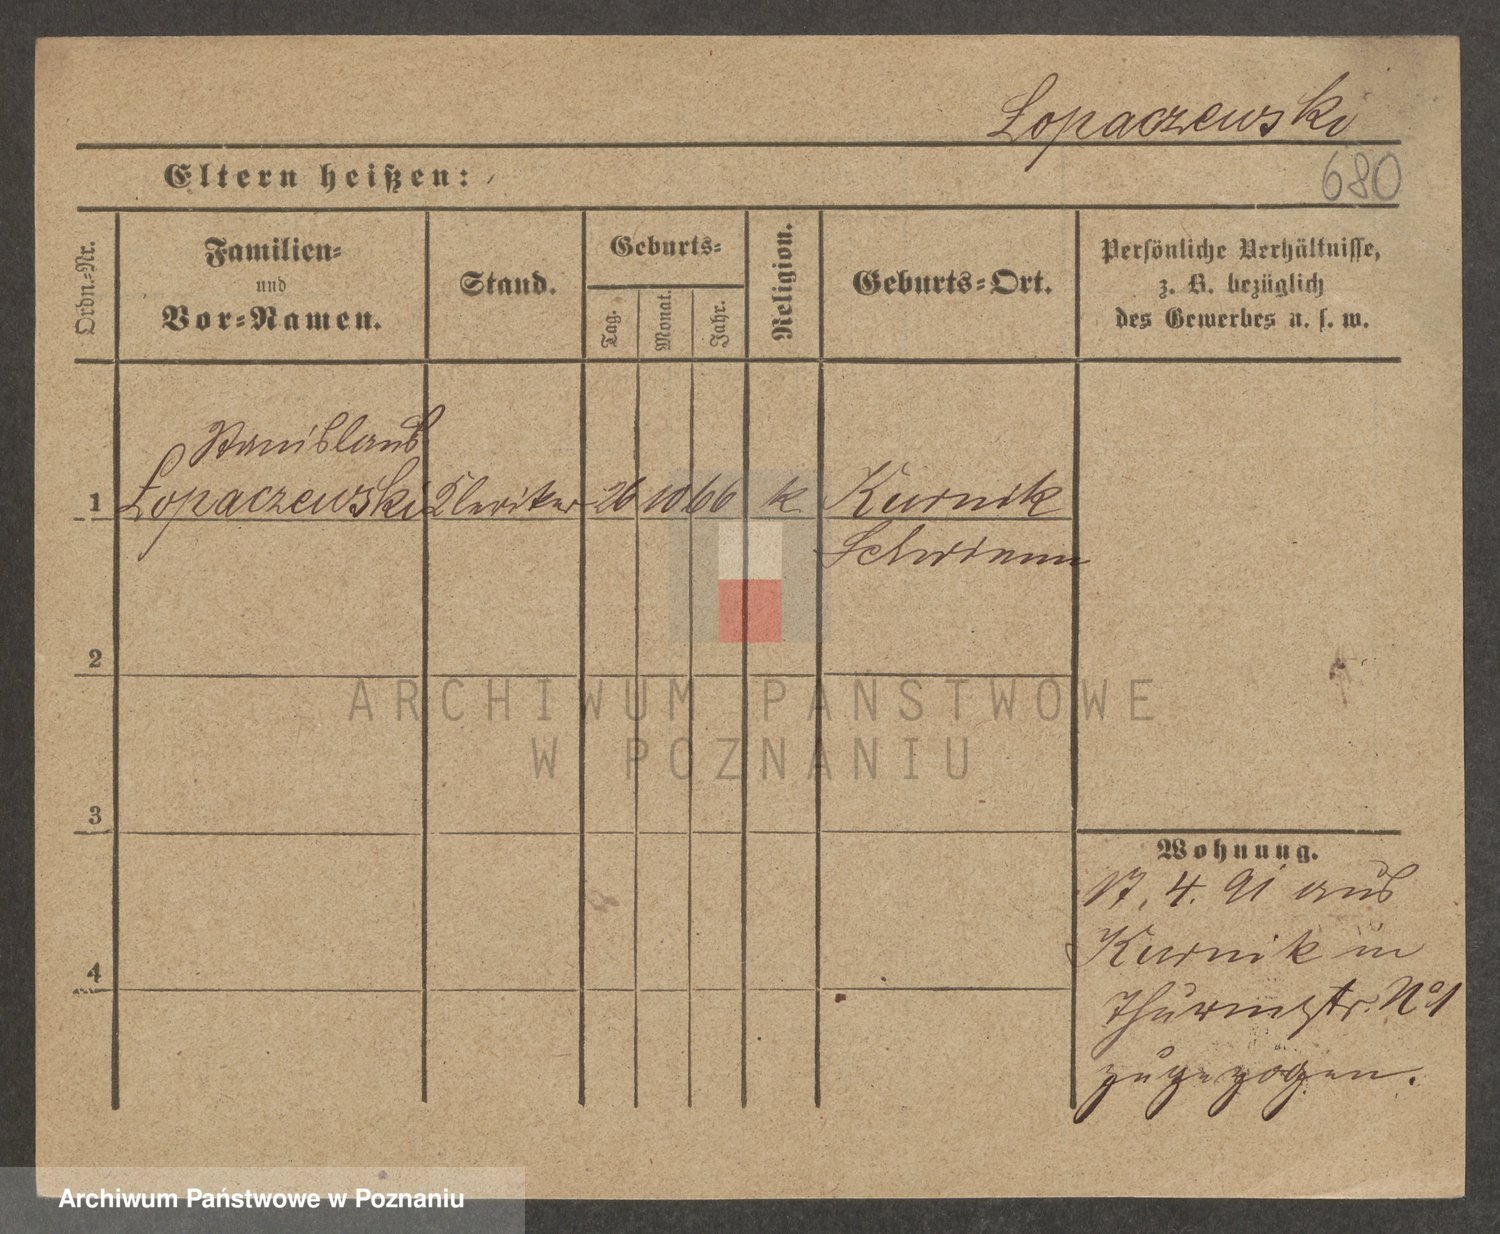 Lopaczewski
Eltern heißen:
680
Ordn.-Nr.
Familien-
und
Vor-Namen.
Stand.
Geburts-
Tag.
Monat.
Jahr.
Religion.
Geburts-Ort.
Persönliche Verhältnisse,
z. B. bezüglich
des Gewerbes u. s. w.
Stanislaus
1 Lopaczewski Kleriker 26 10 66 k Kurnik
Schrimm
2
ARCHIWUM PAŃSTWOWE
W POZNANIU
3
Wohnung.
17. 4. 91 aus
Kurnik in
4
Thurmstr. No 1
zugezogen.
Archiwum Państwowe w Poznaniu